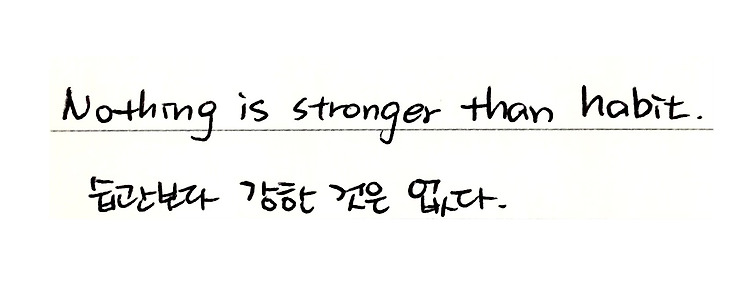 Nothing is stronger than habit.
습관보다 강한 것은 없다.